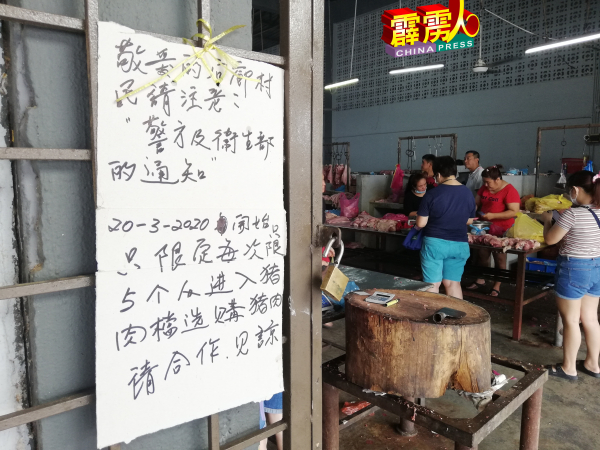 霹雳人
CHINA PRESS
敬爱的信廊村
民請注意：
"警方及衛生部
的通知"
20-3-2020 開始
只限定每次只限
5个人进入猪
肉檔选購猪肉
請合作.見諒